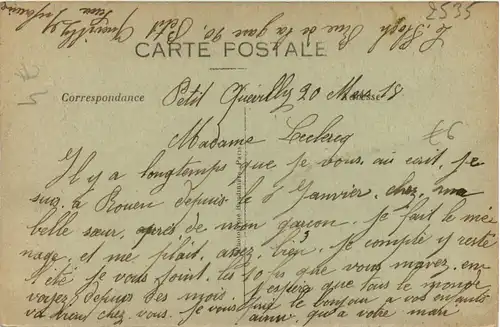 2535
L. Hoch Rue de la gare 90, Petit Quevilly
Seine Inférieure
CARTE POSTALE
Correspondance
Adresse
Petit Quevilly 20 Mars 18
Madame Leclercq
Il y a longtemps que je vous au écrit, je
suis à Rouen depuis le 1 Janvier, chez ma
belle sœur, après de mon garçon. Je fait le mé-
nage, et me plait assez bien. Je compte y resté
l'été je vous joint les 30 ps que vous m'avez en
voyez depuis des mois. J'espère que tous le monde
va bien chez vous. Je vous prie le bonjour à vos enfants
ainsi qu'a votre mari